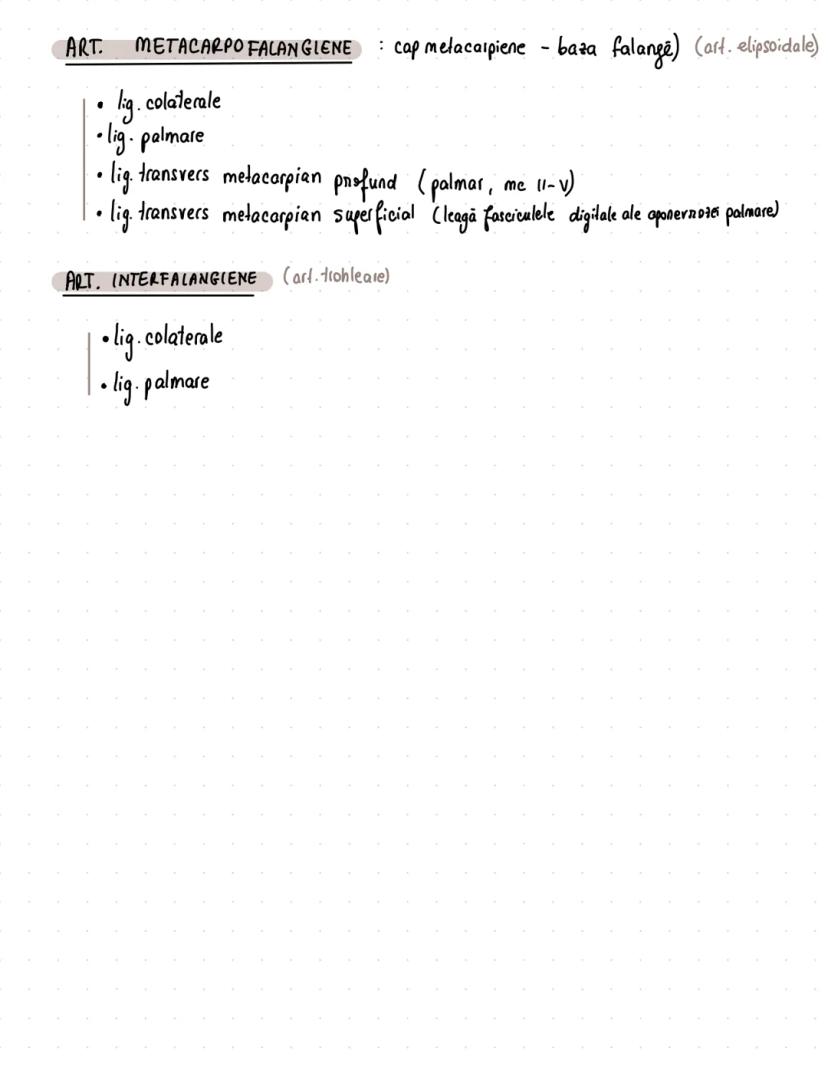 ART. METACARPOFALANGIENE : cap metacarpiene - baza falangă) (art. elipsoidale)
• lig. colaterale
• lig. palmare
• lig. transvers metacarpian profund (palmar, mc II-V)
• lig. transvers metacarpian superficial (leagă fasciculele digitale ale aponevrozei palmare)
ART. INTERFALANGIENE (art. trohleare)
• lig. colaterale
• lig. palmare